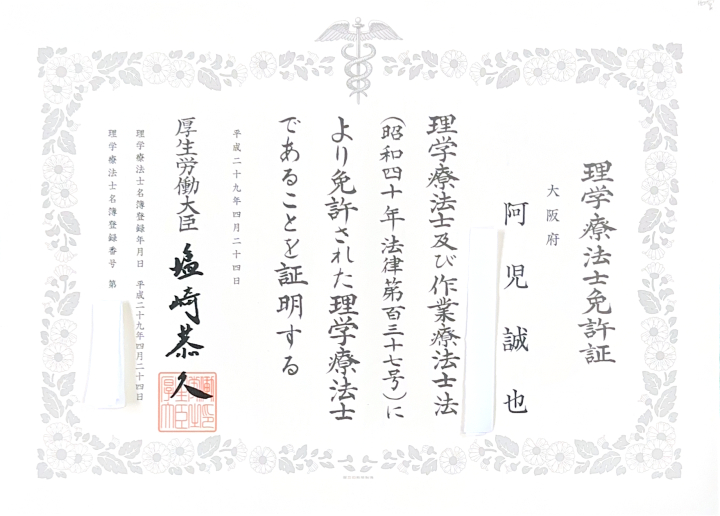 理学療法士免許証
大阪府
阿児誠也
理学療法士及び作業療法士法
(昭和四十年法律第百三十七号)に
より免許された理学療法士
であることを証明する
平成二十九年四月二十四日
厚生労働大臣 塩崎恭久
理学療法士名簿登録年月日 平成二十九年四月二十四日
理学療法士名簿登録番号 第